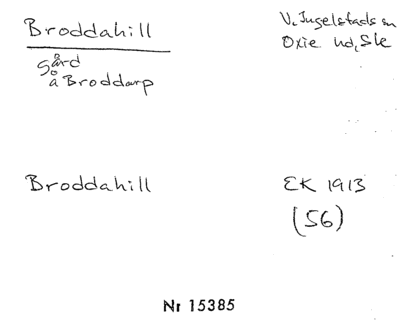 Broddahill
V. Ingelstads sn
Oxie hd, Sk
gård
å Broddarp
Broddahill
EK 1913
(56)
Nr 15385